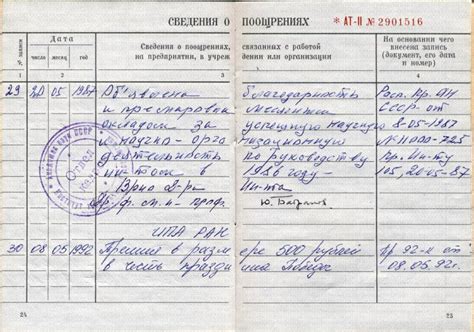 СВЕДЕНИЯ О ПООЩРЕНИЯХ
* АТ-II № 2901516
№ записи
Дата
число
месяц
год
Сведения о поощрениях, связанных с работой
на предприятии, в учреждении или организации
На основании чего
внесена запись
(документ, его дата
и номер)
1 2 3 4
29 20 05 1987 Объявлена благодарность Расп. Пр. АН
и премирован месячным СССР от
окладом за успешную научную 8-05-1987
и научно-организационную № 11000-725
деятельность по руководству Пр. Ин-ту
ин-том в 1986 году 105, 20.05.87
Врио д-ра Ин-та
д.ф.м.н. проф.
ИПА РАН
30 08 05 1992 Премия в размере 500 рублей Пр 92-п от
в честь праздника Победы 08.05.92г.
24
25